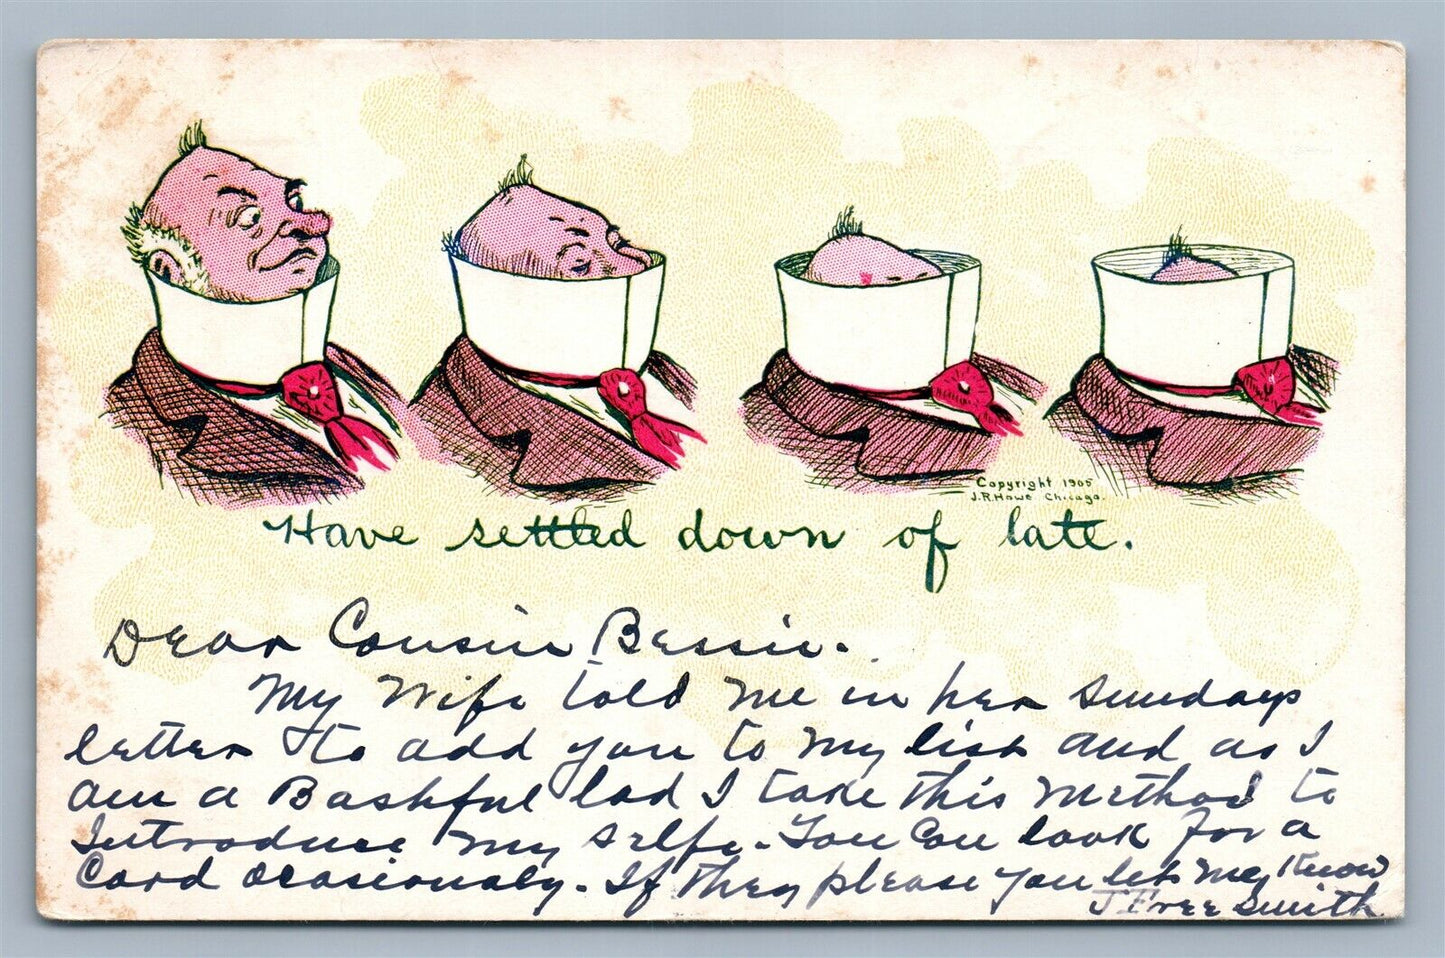 Copyright 1905
J.R. Howe Chicago.
Have settled down of late.
Dear Cousin Bessie.
My Wife told me in her Sundays
letter to add you to my list and as I
am a Bashful lad I take this Method to
Introduce my selfe. You Can look for a
Card ocasionaly. If they please you let me know
J Free Smith.